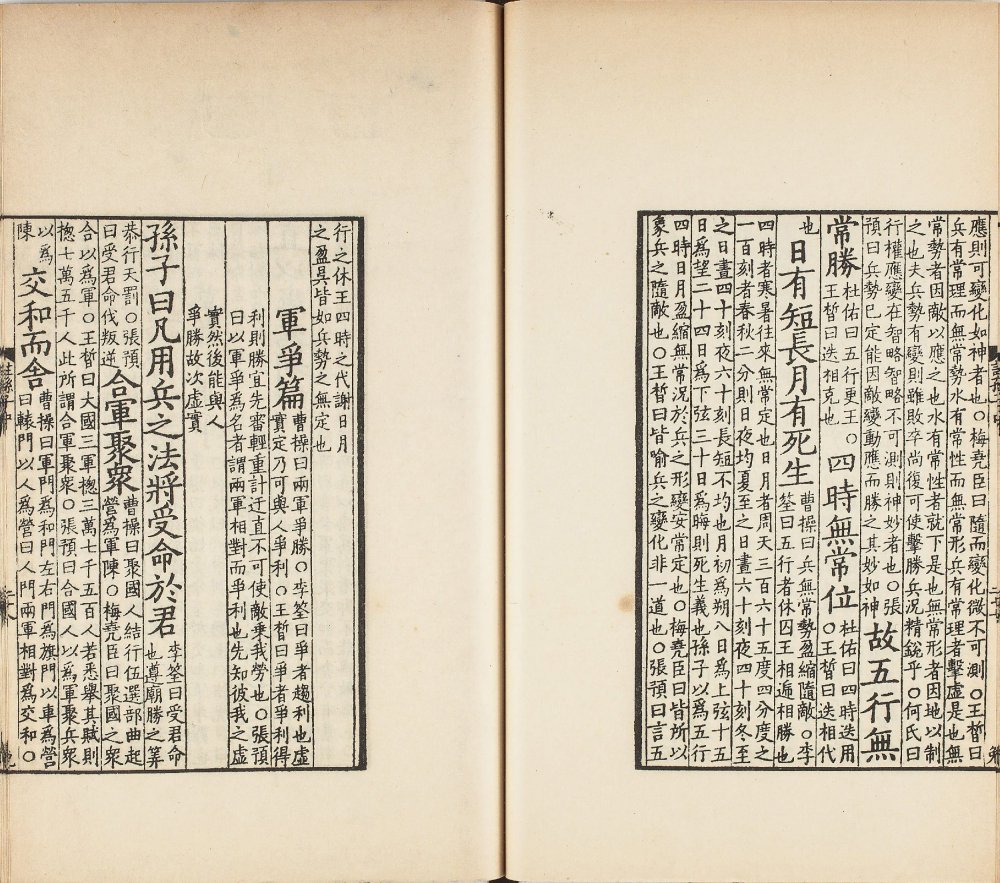 應則可變化如神者也○梅堯臣曰隨而變化微不可測○王晳曰
兵有常理而無常勢水有常性而無常形兵有常理者擊虛是也無
常勢者因敵以應之也水有常性者就下是也無常形者因地以制
之也夫兵勢有變則雖敗卒尚復可使擊勝兵況精銳乎○何氏曰
行權應變在智略智略不可測則神妙者也○張
預曰兵勢已定能因敵變動應而勝之其妙如神
故五行無
常勝
杜佑曰五行更王○
王晳曰迭相克也
四時無常位
杜佑曰四時迭用
○王晳曰迭相代
也
日有短長月有死生
曹操曰兵無常勢盈縮隨敵○李
筌曰五行者休囚王相遞相勝也
四時者寒暑往來無常定也日月者周天三百六十五度四分度之
一百刻者春秋二分則日夜均夏至之日晝六十刻夜四十刻冬至
之日晝四十刻夜六十刻長短不均也月初為朔八日為上弦十五
日為望二十四日為下弦三十日為晦則死生義也孫子以為五行
四時日月盈縮無常況於兵之形變安常定也○梅堯臣曰皆所以
象兵之隨敵也○王晳曰皆喻兵之變化非一道也○張預曰言五
行之休王四時之代謝日月
之盈昃皆如兵勢之無定也
軍爭篇
曹操曰兩軍爭勝○李筌曰爭者趨利也虛
實定乃可與人爭利○王晳曰爭者爭利得
利則勝宜先審輕重計迂直不可使敵乗我勞也○張預
曰以軍爭為名者謂兩軍相對而爭利也先知彼我之虛
實然後能與人
爭勝故次虛實
孫子曰凡用兵之法將受命於君
李筌曰受君命
也遵廟勝之筭
恭行天罰○張預
曰受君命伐叛逆
合軍聚衆
曹操曰聚國人結行伍選部曲起
營為軍陳○梅堯臣曰聚國之衆
合以為軍○王晳曰大國三軍揔三萬七千五百人若悉舉其賦則
揔七萬五千人此所謂合軍聚衆○張預曰合國人以為軍聚兵衆
以為
陳
交和而舍
曹操曰軍門為和門左右門為旗門以車為營
曰轅門以人為營曰人門兩軍相對為交和○